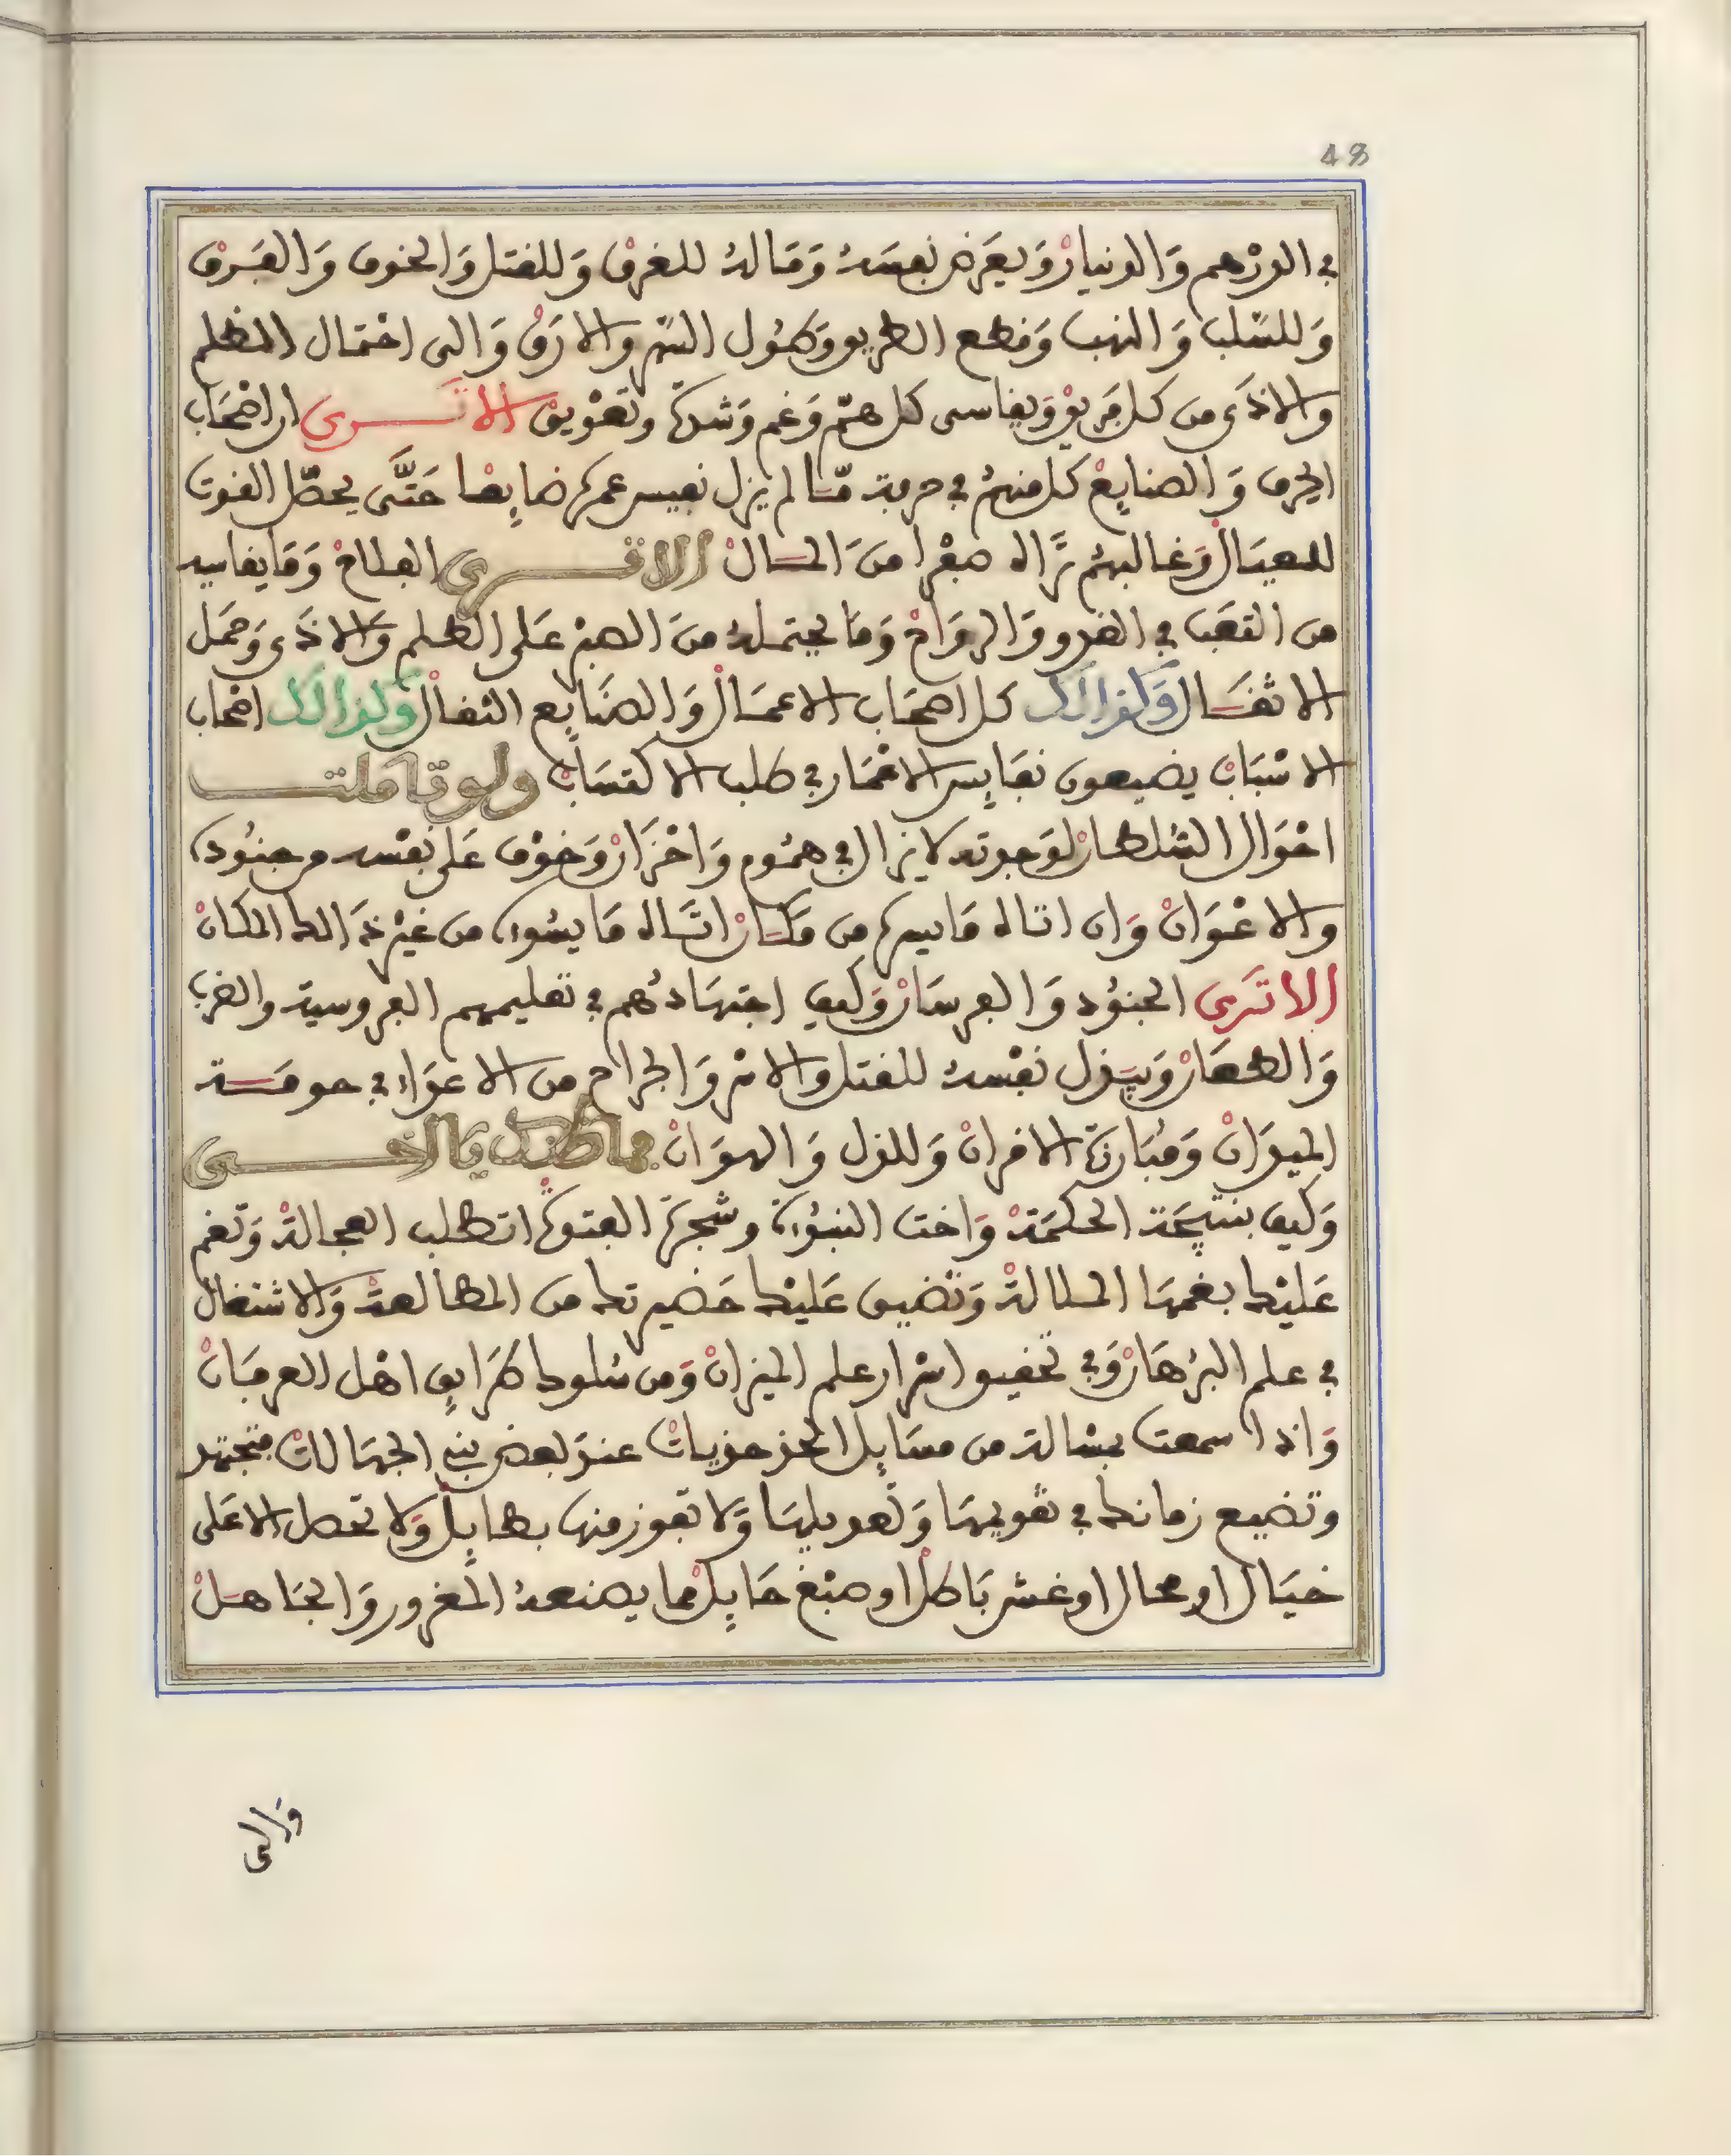 48
في الدرهم والدينار ويعرض نفسه وماله للغرق وللقتل والخوف والفرق
وللسلب والنهب وقطع الطريق وطول السهر والارق والى احتمال الظلم
والاذى من كل فريق ويقاسى كل هم وغم وشدة وتعويق الا تـرى ان اصحاب
الحرف والصنايع كل منهم في حرفة ما لم يزل نفيس عمره ضايعا حتى يحصل القوت
للعيال وغالبهم تراه صفرا من المال الا تـرى الفلاح وما يقاسيه
من التعب في الغدو والرواح وما يحتمله من الصبر على الظلم والاذى وحمل
الاثقال وكذالك كل اصحاب الاعمال والصنايع الثقال وكذالك اصحاب
الاسباب يضيعون نفايس الاعمار في طلب الاكتساب ولو تاملت
احوال السلطان لوجدته لا يزال في هموم واحزان وخوف على نفسه من جنوده
والاعوان وان اتاه ما يسره من مكان اتاه ما يسوءه من غير ذالك المكان
الا ترى الجنود والفرسان وكيف اجتهادهم في تعليمهم الفروسية والضرب
والطعان وبذل نفسه للقتل والاسر والجراح من الاعداء في حومة
الميدان ومبارزة الاقران وللذل والهوان فما ظنك يا اخى
وكيف بنتيجة الحكمة واخت النبوءة وشجرة الفتوة اتطلب العجالة وتغم
عليك بغمها الملالة وتضيق عليك حضيرتك من المطالعة والاشتغال
في علم البرهان وفي تحقيق اسرار علم الميزان ومن سلوك طرايق اهل العرفان
واذا سمعت بمسالة من مسايل الحزحزيات عند بعض بني الجهالات فتجتهد
وتضيع زمانك في تقويمها وتعديلها ولا تفوز منها بطايل ولا تحصل الا على
خيال او محال او غش باطل او صبغ حايل مما يصنعه المغرور والجاهل
والى